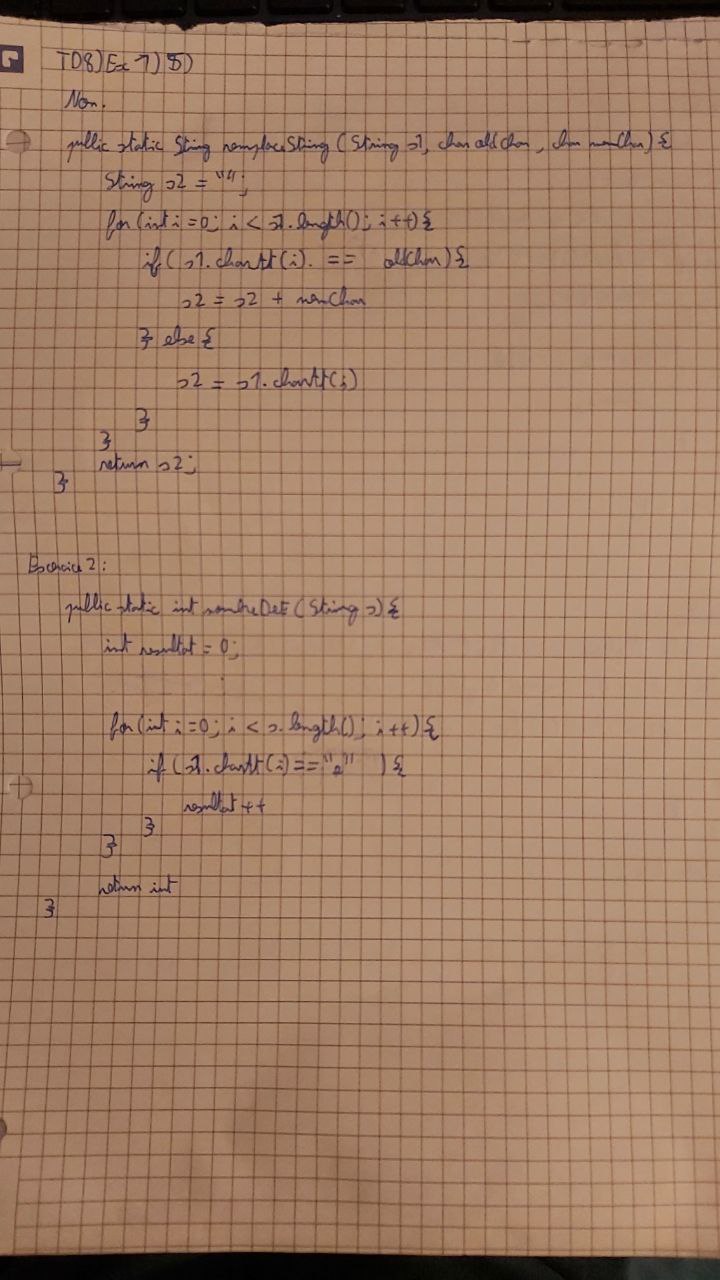 TD8) Ex 1) 5)
Non.
public static String remplaceString (String s1, char oldChar, char newChar) {
String s2 = "";
for (int i = 0; i < s1.length(); i++) {
if ( s1.charAt(i). == oldChar) {
s2 = s2 + newChar
} else {
s2 = s1.charAt(i)
}
}
return s2;
}
Exercice 2 :
public static int nombreDeE (String s) {
int resultat = 0;
for (int i = 0; i < s.length(); i++) {
if (s1.charAt(i) == "e" ) {
resultat ++
}
}
return int
}